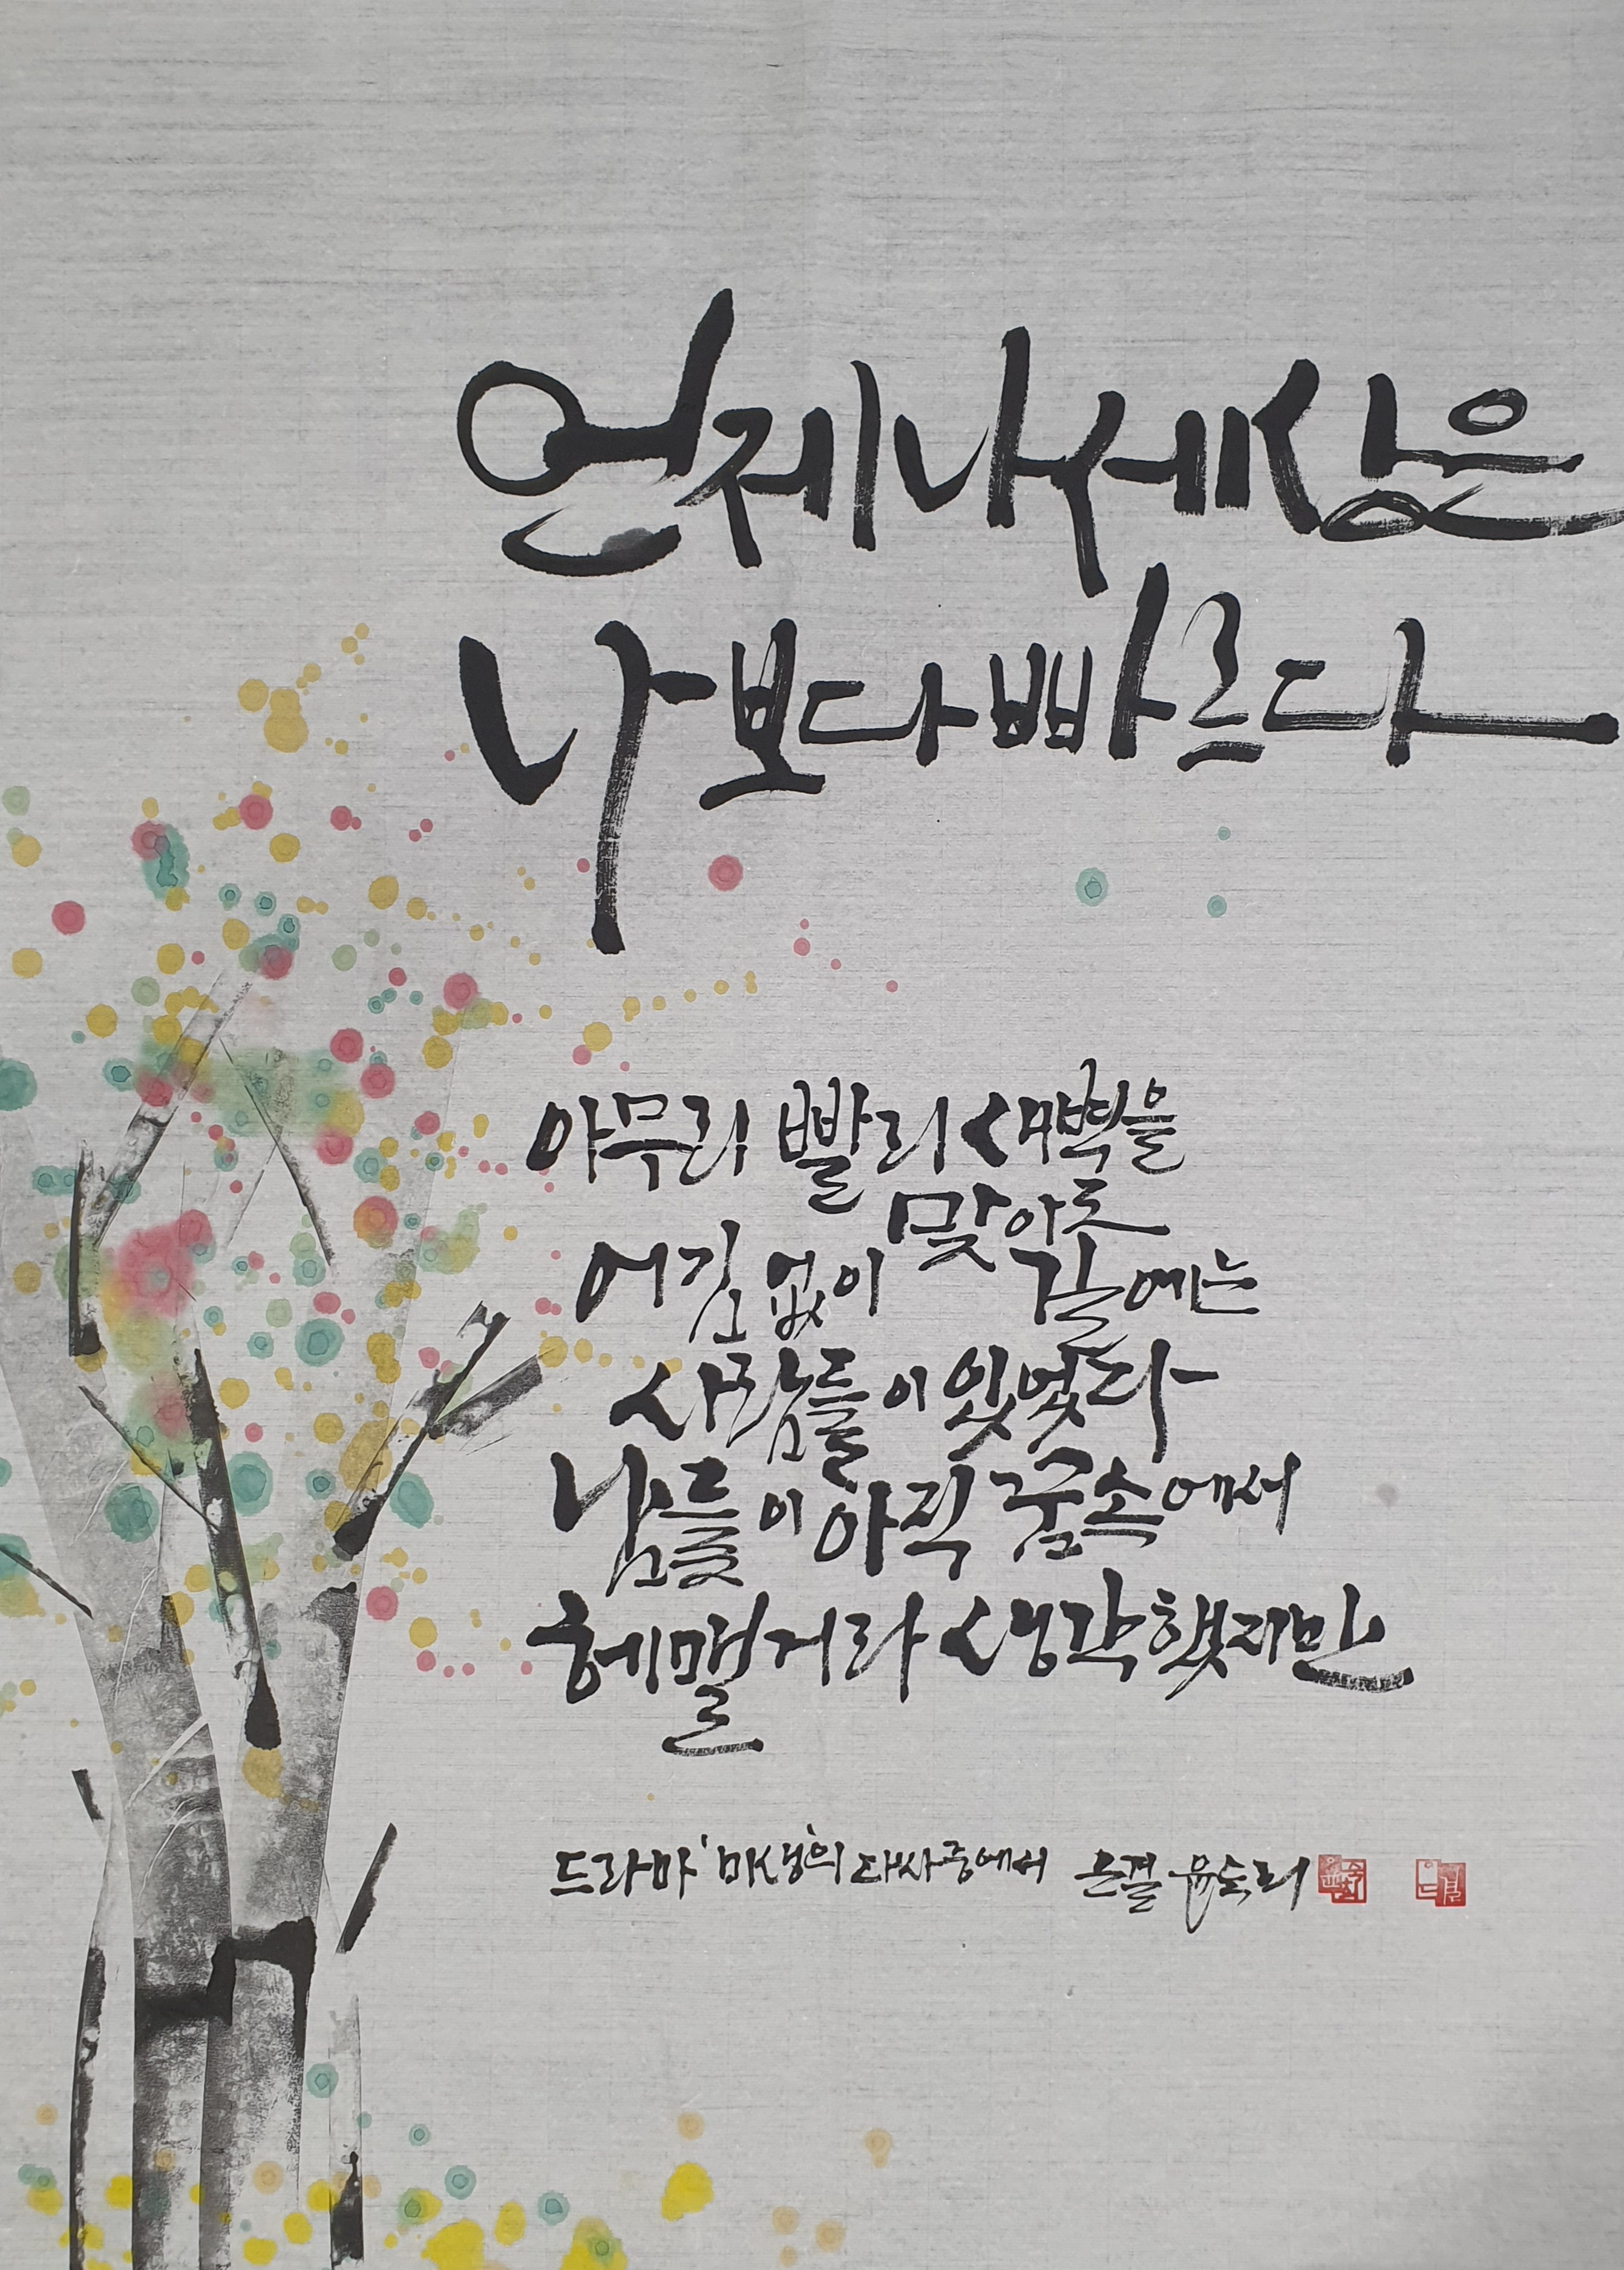 언제나 세상은
나보다 빠르다
아무리 빨리 새벽을
맞아도
어김없이 길에는
사람들이 있었다
남들이 아직 꿈속에서
헤맬 거라 생각했지만
드라마 '미생'의 대사중에서 은결 윤숙희